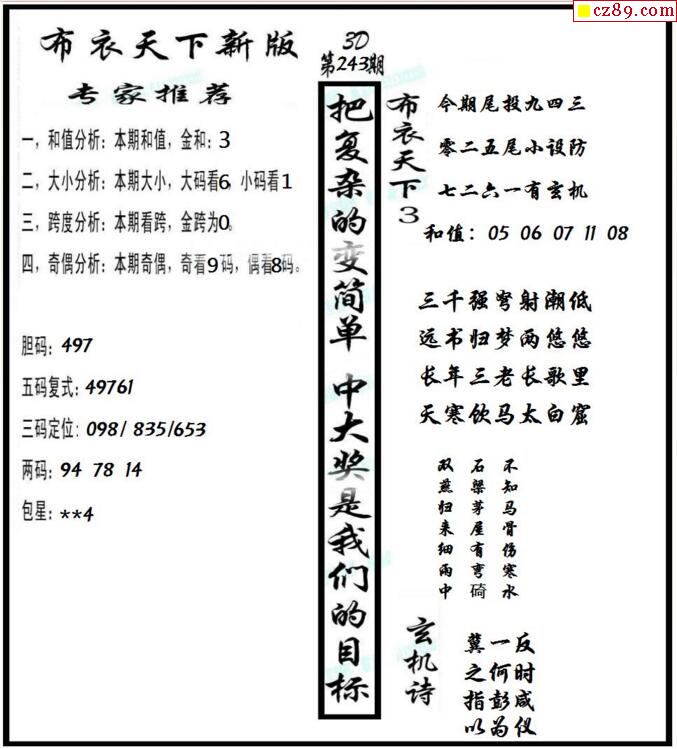 cz89.com
布衣天下新版
专家推荐
一，和值分析：本期和值，金和：3
二，大小分析：本期大小，大码看6，小码看1
三，跨度分析：本期看跨，金跨为0。
四，奇偶分析：本期奇偶，奇看9码，偶看8码。
胆码：497
五码复式：49761
三码定位：098/ 835/653
两码：94 78 14
包星：**4
3D
第243期
把复杂的变简单 中大奖是我们的目标
布衣天下3
今期尾投九四三
零二五尾小设防
七二六一有玄机
和值： 05 06 07 11 08
三千强弩射潮低
远书归梦两悠悠
长年三老长歌里
天寒饮马太白窟
不知马骨伤寒水
石梁茅屋有弯碕
双燕归来细雨中
玄机诗
冀一反
之何时
指彭咸
以为仪